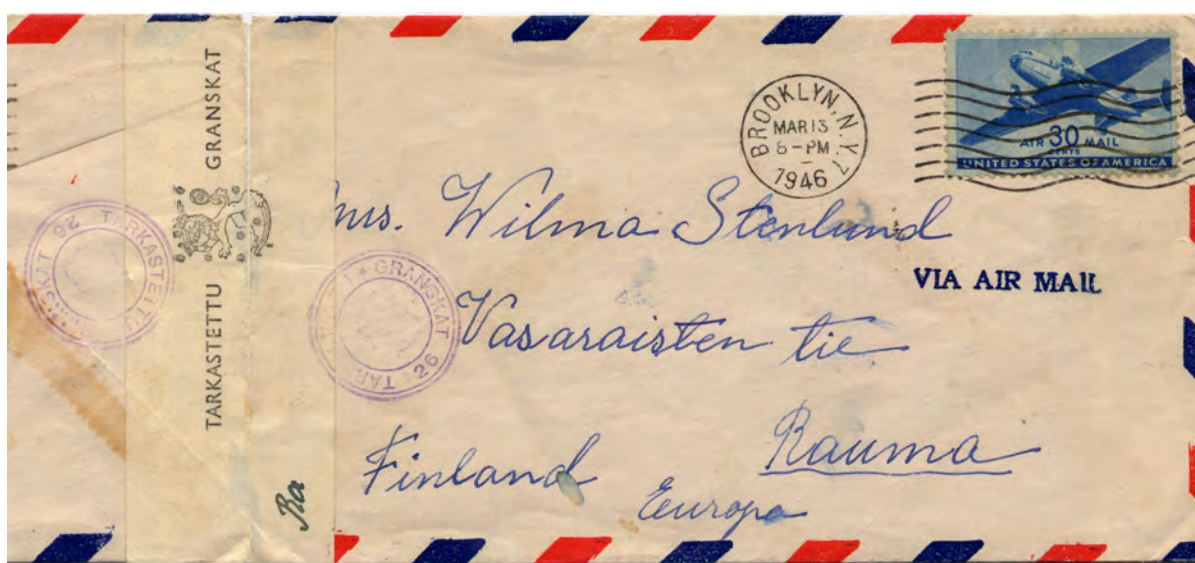 TARKASTETTU GRANSKAT
TARKASTETTU GRANSKAT 26
GRANSKAT 26 TARKASTETTU
Ra
BROOKLYN, N.Y. 7
MAR 13
8-PM
1946
AIR 30 MAIL
CENTS
UNITED STATES OF AMERICA
VIA AIR MAIL
Mrs. Wilma Stenlund
Vasaraisten tie
Rauma
Finland
Europa